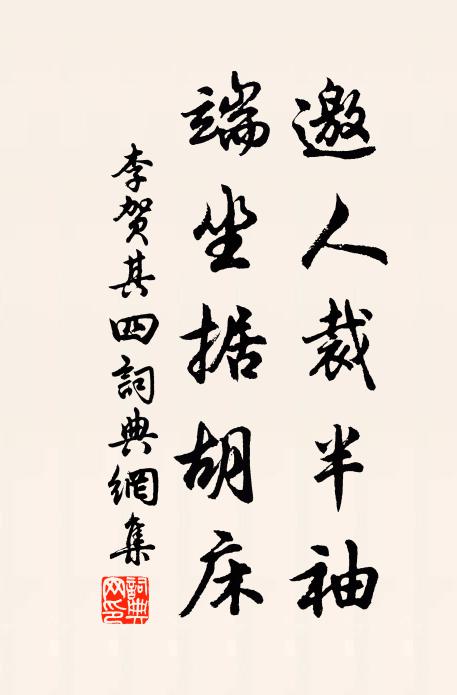 邀人裁半袖
端坐据胡床
李贺其四詞典網集
詞典网印